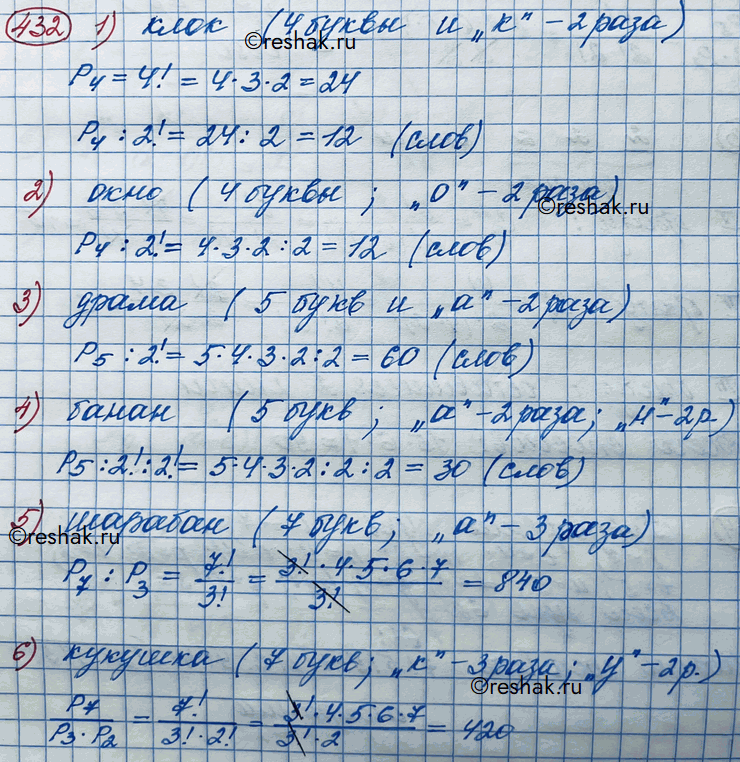 432 1) клок (4 буквы и „к" - 2 раза)
©reshak.ru
P₄ = 4! = 4·3·2 = 24
P₄ : 2! = 24 : 2 = 12 (слов)
2) окно (4 буквы ; „о" - 2 раза)
©reshak.ru
P₄ : 2! = 4·3·2 : 2 = 12 (слов)
3) драма (5 букв и „а" - 2 раза)
P₅ : 2! = 5·4·3·2 : 2 = 60 (слов)
4) банан (5 букв ; „а" - 2 раза; „н" - 2 р.)
P₅ : 2! : 2! = 5·4·3·2 : 2 : 2 = 30 (слов)
5) шарабан (7 букв; „а" - 3 раза)
©reshak.ru ©reshak.ru
P₇ : P₃ = 7!/3! = 3!·4·5·6·7/3! = 840
6) кукушка (7 букв; „к" - 3 раза; „у" - 2 р.)
©reshak.ru
P₇/P₃·P₂ = 7!/3!·2! = 3!·4·5·6·7/3!·2 = 420